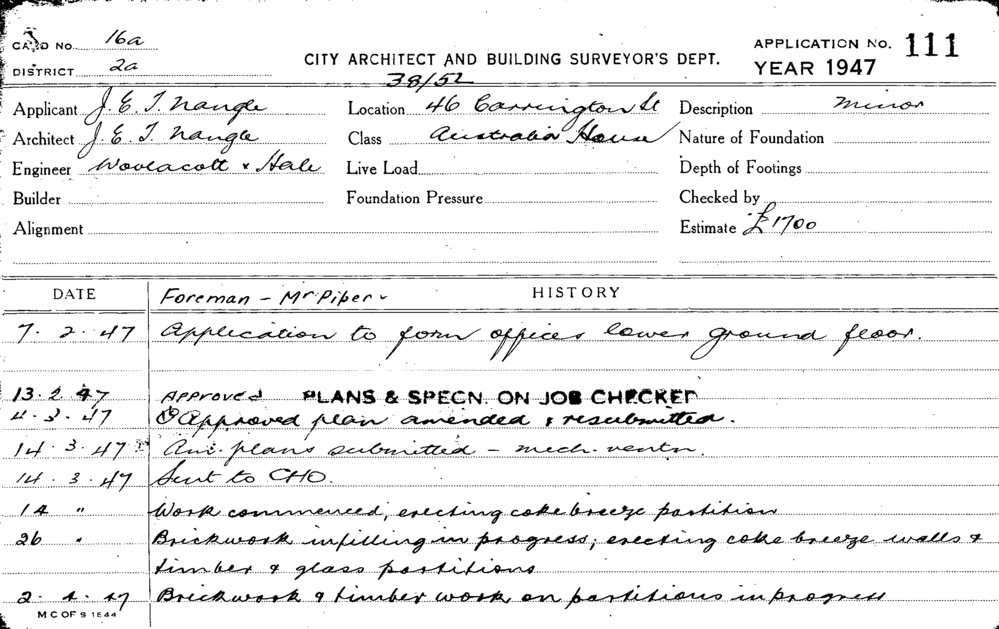 CARD No. 16a
DISTRICT 2a
CITY ARCHITECT AND BUILDING SURVEYOR'S DEPT.
38/52
APPLICATION No. 111
YEAR 1947
Applicant J. E. T. Nangle
Location 46 Carrington St
Description minor
Architect J. E. T. Nangle
Class Australia House
Nature of Foundation
Engineer Woolacott & Hale
Live Load
Depth of Footings
Builder
Foundation Pressure
Checked by
Alignment
Estimate £1700
DATE
Foreman - Mr Piper
HISTORY
7. 2. 47 Application to form offices lower ground floor.
13. 2. 47 APPROVED PLANS & SPECN. ON JOB CHECKED
4. 3. 47 Approved plan amended & resubmitted.
14. 3. 47 Am. plans submitted - mech. ventn.
14. 3. 47 Sent to CHO.
14 " Work commenced, erecting coke breeze partition
26 " Brickwork infilling in progress; erecting coke breeze walls &
timber & glass partitions
2. 4. 47 Brickwork & timber work on partitions in progress
M C OF S 1844